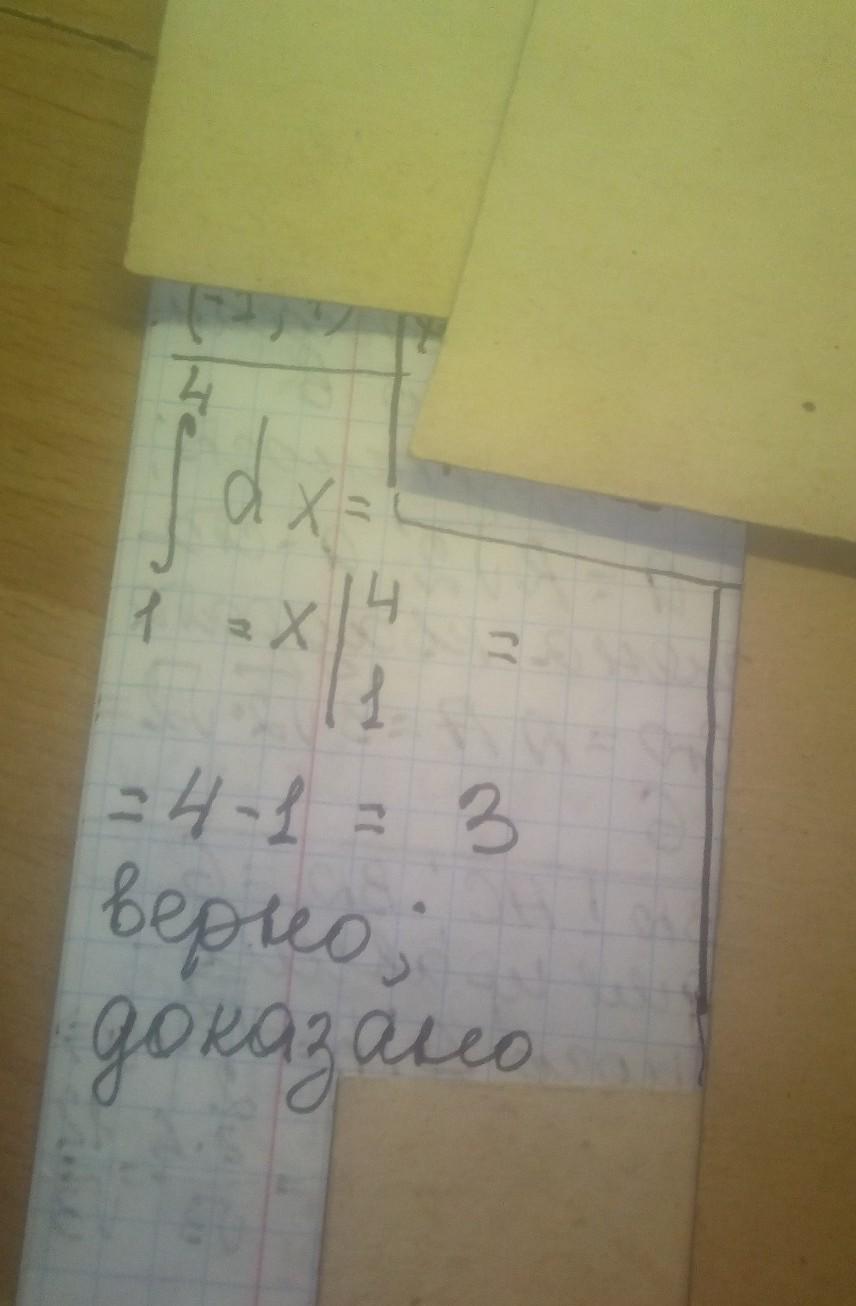 4
∫ dx =
1 = x | 4 =
1
= 4 - 1 = 3
верно;
доказано